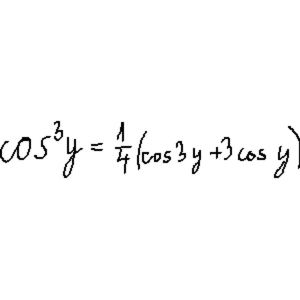 cos³y = 1/4 (cos3y + 3cos y)